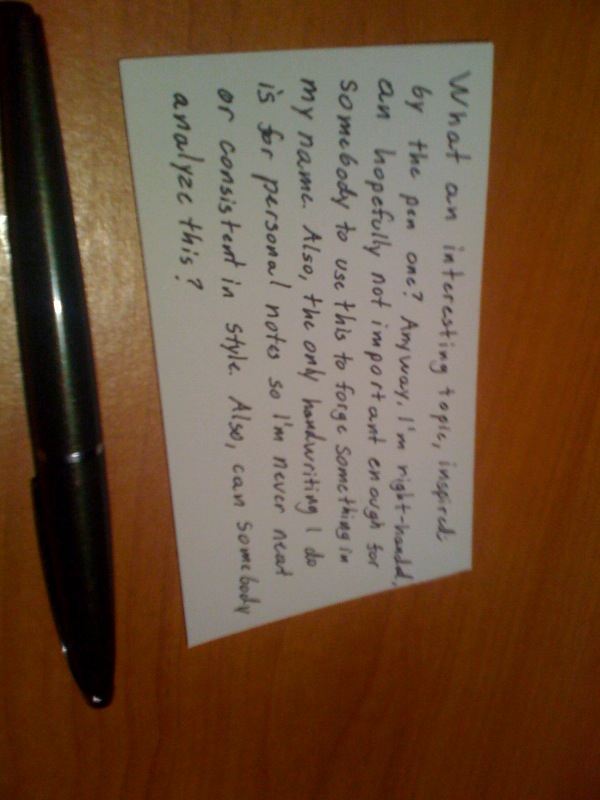 What an interesting topic, inspired
by the pen one? Anyway, I'm right-handed,
an hopefully not important enough for
somebody to use this to forge something in
my name. Also, the only handwriting I do
is for personal notes so I'm never neat
or consistent in style. Also, can somebody
analyze this?